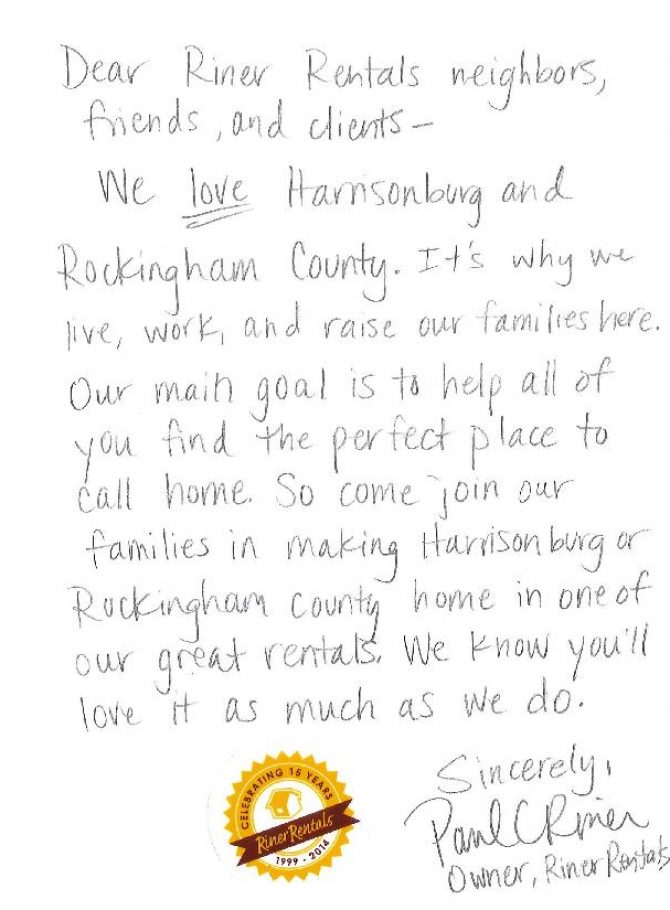 Dear Riner Rentals neighbors,
friends, and clients—
We love Harrisonburg and
Rockingham County. It's why we
live, work, and raise our families here.
Our main goal is to help all of
you find the perfect place to
call home. So come join our
families in making Harrisonburg or
Rockingham county home in one of
our great rentals. We know you'll
love it as much as we do.
CELEBRATING 15 YEARS
Riner Rentals
1999 - 2014
Sincerely,
Paul C Riner
Owner, Riner Rentals